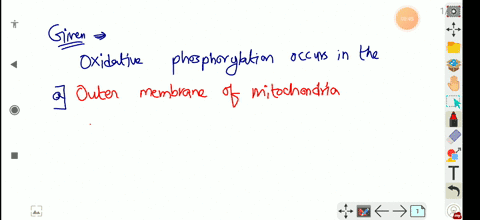 Given →
Oxidative phosphorylation occurs in the
a] Outer membrane of mitochondria